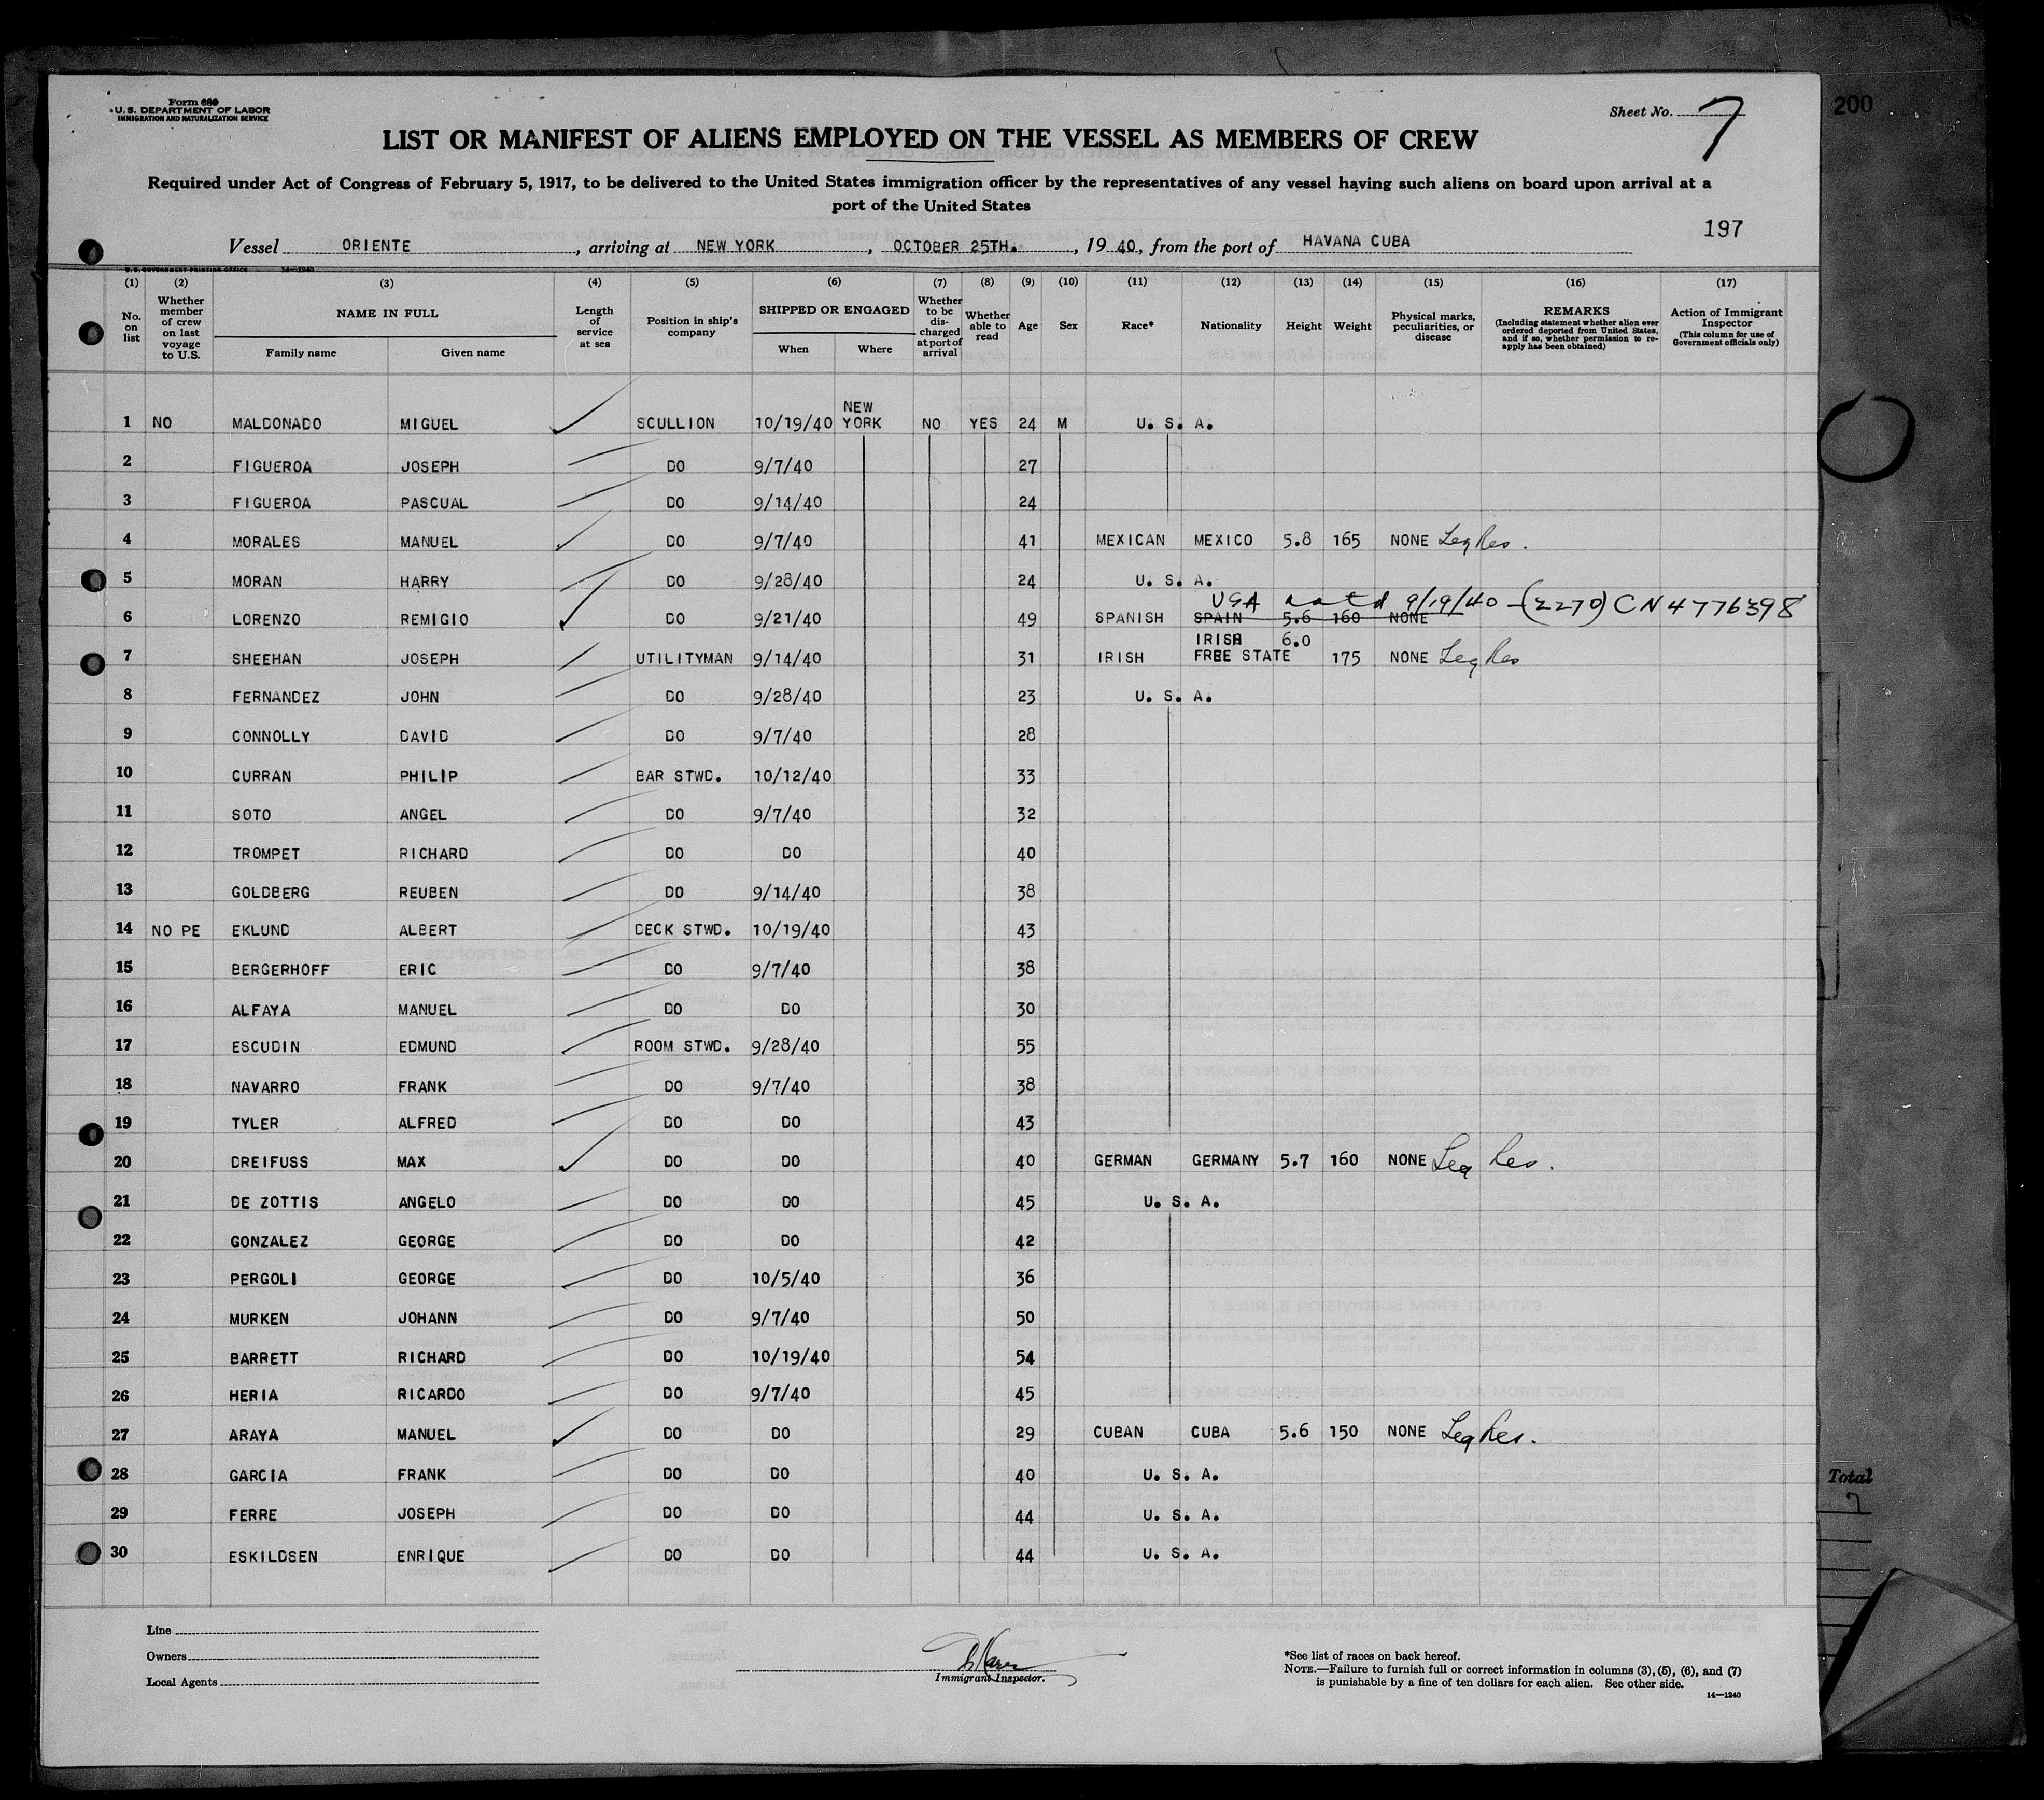 Form 680
U.S. DEPARTMENT OF LABOR
IMMIGRATION AND NATURALIZATION SERVICE
Sheet No. 7
200
LIST OR MANIFEST OF ALIENS EMPLOYED ON THE VESSEL AS MEMBERS OF CREW
Required under Act of Congress of February 5, 1917, to be delivered to the United States immigration officer by the representatives of any vessel having such aliens on board upon arrival at a
port of the United States
197
Vessel ORIENTE, arriving at NEW YORK, OCTOBER 25TH., 19 40, from the port of HAVANA CUBA
U.S. GOVERNMENT PRINTING OFFICE 14—1240
(1) (2) (3) (4) (5) (6) (7) (8) (9) (10) (11) (12) (13) (14) (15) (16) (17)
No. on list
Whether member of crew on last voyage to U.S.
NAME IN FULL
Family name Given name
Length of service at sea
Position in ship's company
SHIPPED OR ENGAGED
When Where
Whether to be discharged at port of arrival
Whether able to read
Age
Sex
Race*
Nationality
Height
Weight
Physical marks, peculiarities, or disease
REMARKS
(Including statement whether alien ever ordered deported from United States, and if so, whether permission to reapply has been obtained)
Action of Immigrant Inspector
(This column for use of Government officials only)
1 NO MALDONADO MIGUEL SCULLION 10/19/40 NEW YORK NO YES 24 M U. S. A.
2 FIGUEROA JOSEPH DO 9/7/40 27
3 FIGUEROA PASCUAL DO 9/14/40 24
4 MORALES MANUEL DO 9/7/40 41 MEXICAN MEXICO 5.8 165 NONE Leg Res.
5 MORAN HARRY DO 9/28/40 24 U. S. A.
USA natd 9/19/40 - (2270) CN 4776398
6 LORENZO REMIGIO DO 9/21/40 49 SPANISH SPAIN 5.6 160 NONE
7 SHEEHAN JOSEPH UTILITYMAN 9/14/40 31 IRISH IRISH FREE STATE 6.0 175 NONE Leg Res
8 FERNANDEZ JOHN DO 9/28/40 23 U. S. A.
9 CONNOLLY DAVID DO 9/7/40 28
10 CURRAN PHILIP BAR STWD. 10/12/40 33
11 SOTO ANGEL DO 9/7/40 32
12 TROMPET RICHARD DO DO 40
13 GOLDBERG REUBEN DO 9/14/40 38
14 NO PE EKLUND ALBERT DECK STWD. 10/19/40 43
15 BERGERHOFF ERIC DO 9/7/40 38
16 ALFAYA MANUEL DO DO 30
17 ESCUDIN EDMUND ROOM STWD. 9/28/40 55
18 NAVARRO FRANK DO 9/7/40 38
19 TYLER ALFRED DO DO 43
20 DREIFUSS MAX DO DO 40 GERMAN GERMANY 5.7 160 NONE Leg Res.
21 DE ZOTTIS ANGELO DO DO 45 U. S. A.
22 GONZALEZ GEORGE DO DO 42
23 PERGOLI GEORGE DO 10/5/40 36
24 MURKEN JOHANN DO 9/7/40 50
25 BARRETT RICHARD DO 10/19/40 54
26 HERIA RICARDO DO 9/7/40 45
27 ARAYA MANUEL DO DO 29 CUBAN CUBA 5.6 150 NONE Leg Res.
28 GARCIA FRANK DO DO 40 U. S. A.
29 FERRE JOSEPH DO DO 44 U. S. A.
30 ESKILDSEN ENRIQUE DO DO 44 U. S. A.
Total
7
Line
Owners
Local Agents
Immigrant Inspector.
*See list of races on back hereof.
NOTE.—Failure to furnish full or correct information in columns (3), (5), (6), and (7)
is punishable by a fine of ten dollars for each alien. See other side.
14—1240